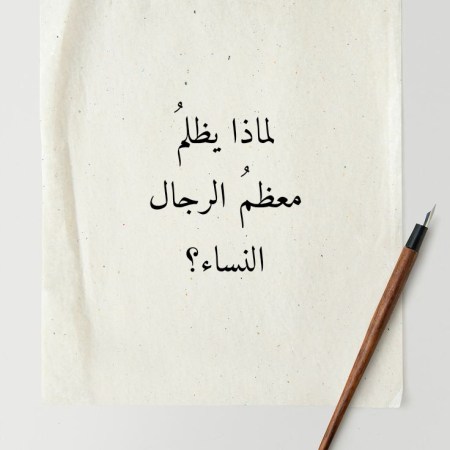 لماذا يظلمُ
معظمُ الرجال
النساء؟